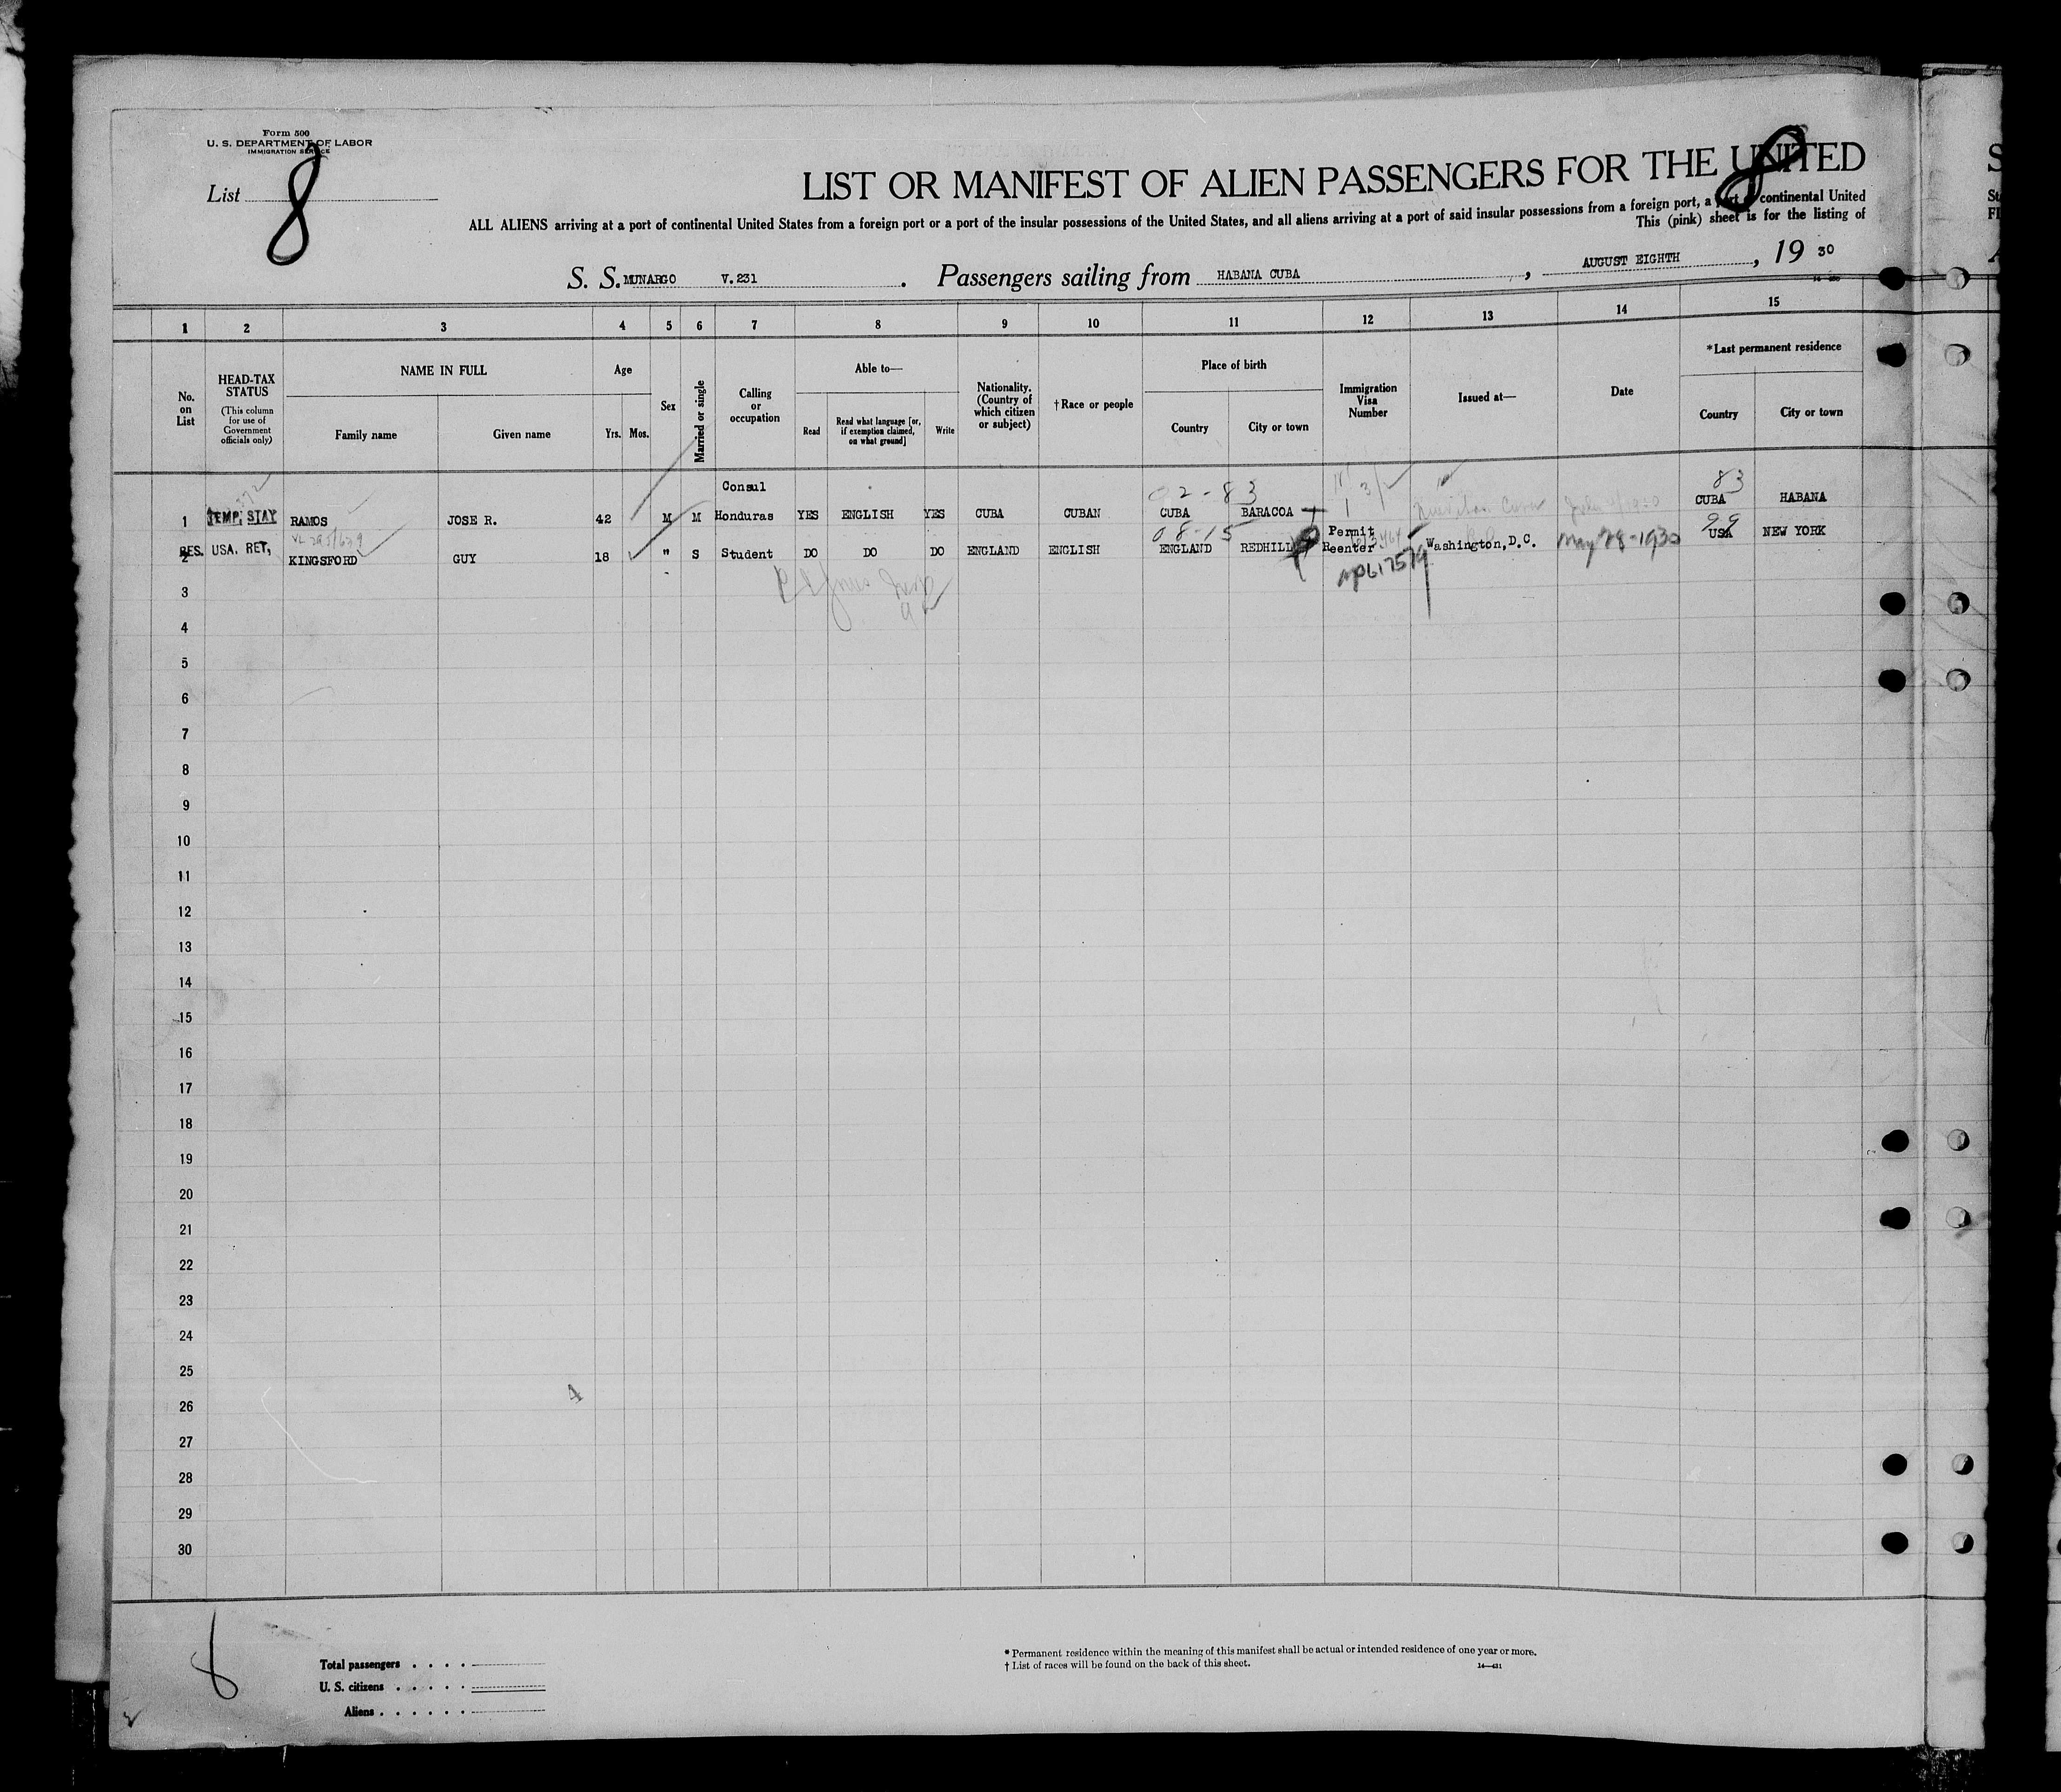 Form 500
U. S. DEPARTMENT OF LABOR
IMMIGRATION SERVICE
List 8
8
LIST OR MANIFEST OF ALIEN PASSENGERS FOR THE UNITED
ALL ALIENS arriving at a port of continental United States from a foreign port or a port of the insular possessions of the United States, and all aliens arriving at a port of said insular possessions from a foreign port, a port of continental United
This (pink) sheet is for the listing of
S. S. MUNARGO V.231 . Passengers sailing from HABANA CUBA , AUGUST EIGHTH , 19 30
1 2 3 4 5 6 7 8 9 10 11 12 13 14 15
No. on List
HEAD-TAX STATUS
(This column for use of Government officials only)
NAME IN FULL
Family name Given name
Age
Yrs. Mos.
Sex
Married or single
Calling or occupation
Able to—
Read
Read what language [or, if exemption claimed, on what ground]
Write
Nationality. (Country of which citizen or subject)
†Race or people
Place of birth
Country City or town
Immigration Visa Number
Issued at—
Date
*Last permanent residence
Country City or town
02-83 83
1 TEMP. STAY RAMOS JOSE R. 42 M M Consul Honduras YES ENGLISH YES CUBA CUBAN CUBA BARACOA CUBA HABANA
08-15 99
2 RES. USA. RET, KINGSFORD GUY 18 " S Student DO DO DO ENGLAND ENGLISH ENGLAND REDHILL Permit Reenter Washington,D.C. May 28-1930 USA NEW YORK
3
4
5
6
7
8
9
10
11
12
13
14
15
16
17
18
19
20
21
22
23
24
25
26
27
28
29
30
4
8
Total passengers . . . .
U. S. citizens . . . . .
Aliens . . . . . .
* Permanent residence within the meaning of this manifest shall be actual or intended residence of one year or more.
† List of races will be found on the back of this sheet.
14—431